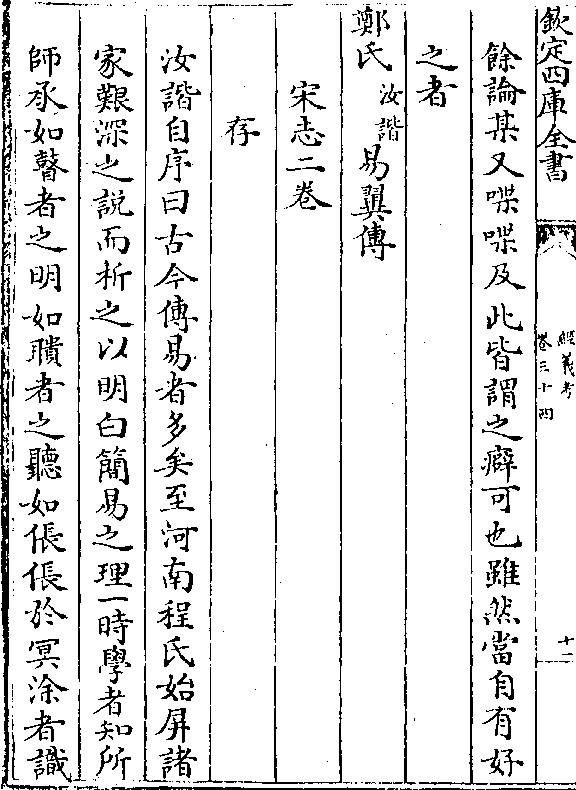 欽定四庫全書
經義考
卷三十四
十二
餘論某又喋喋及此皆謂之癖可也雖然當自有好
之者
鄭氏汝諧易翼傳
宋志二卷
存
汝諧自序曰古今傳易者多矣至河南程氏始屏諸
家艱深之說而析之以明白簡易之理一時學者知所
師承如瞽者之明如聵者之聽如倀倀於冥涂者識